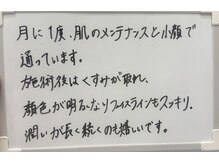 月に1度、肌のメンテナンスと小顔で
通っています。
施術後はくすみが取れ、
顔色が明るくなりフェイスラインもスッキリ.
潤いが長く続くのも嬉しいです。